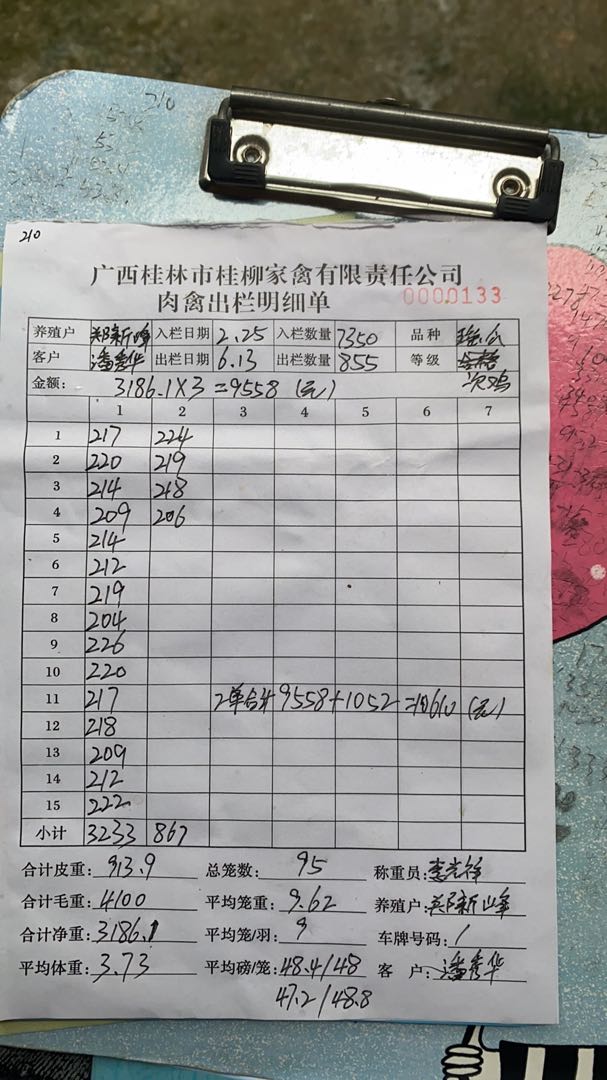 210
广西桂林市桂柳家禽有限责任公司
肉禽出栏明细单 0000133
养殖户 郑新峰 入栏日期 2.25 入栏数量 7350 品种
客户 潘秀华 出栏日期 6.13 出栏数量 855 等级 合格
金额: 3186.1×3=9558 (元) 次鸡
1 2 3 4 5 6 7
1 217 224
2 220 219
3 214 218
4 209 206
5 214
6 212
7 219
8 204
9 226
10 220
11 217 2单合计 9558+1052=10610 (元)
12 218
13 209
14 212
15 222
小计 3233 867
合计皮重: 913.9 总笼数: 95 称重员: 李光
合计毛重: 4100 平均笼重: 9.62 养殖户: 郑新峰
合计净重: 3186.1 平均笼/羽: 9 车牌号码: /
平均体重: 3.73 平均磅/笼: 48.4/48 客 户: 潘秀华
47.2/48.8